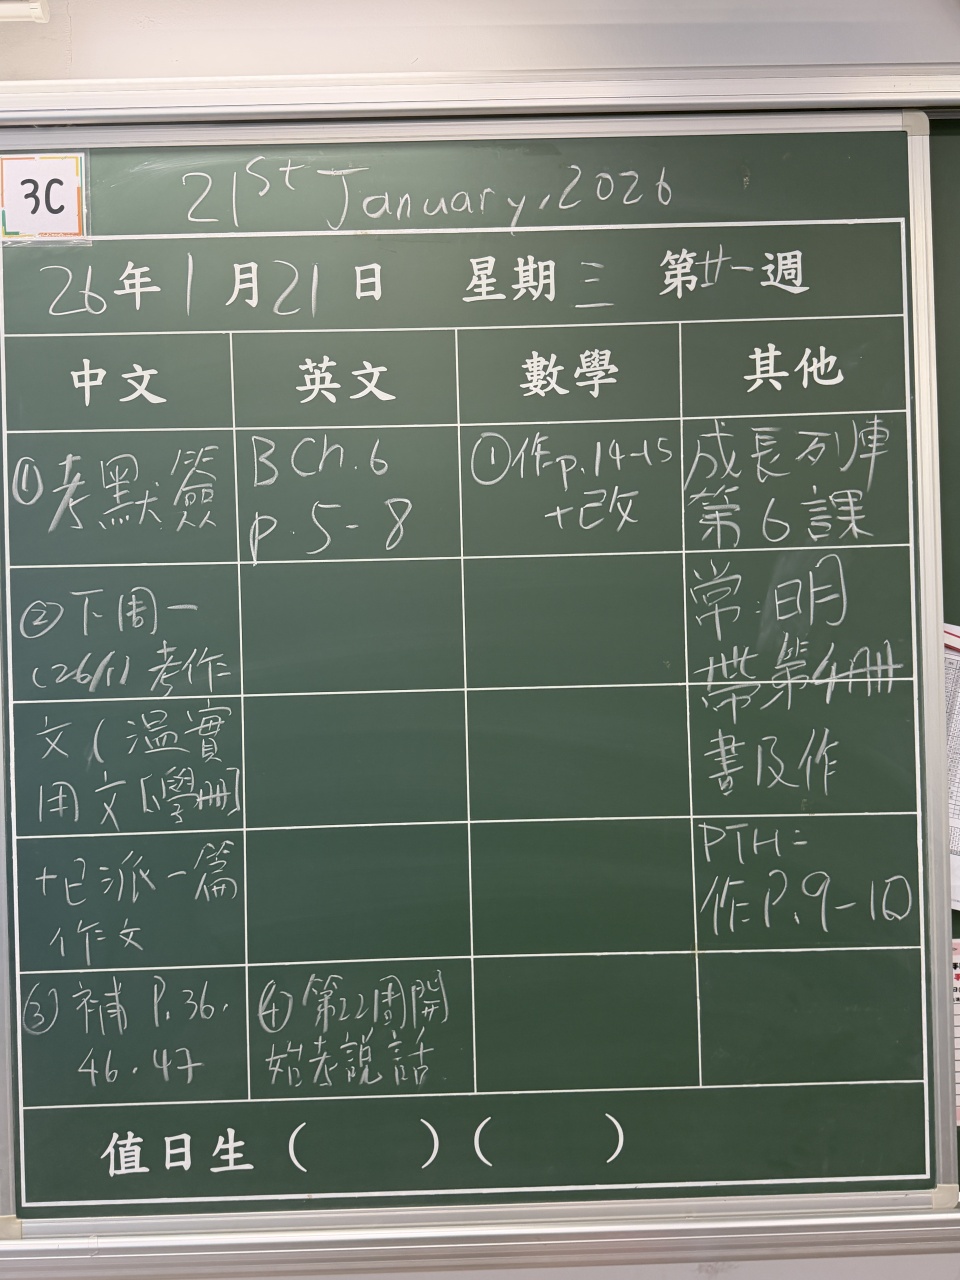 3C
21st January, 2026
26年1月21日 星期三 第廿一週
中文 英文 數學 其他
①考默簽
②下周一
(26/1) 考作
文(溫實
用文[學冊]
+已派一篇
作文
③補 P.36.
46.47
B Ch.6
p.5-8
④第22周開
始考說話
①作p.14-15
+改
成長列車
第6課
常:明
帶第4冊
書及作
PTH:
作P.9-10
值日生( )( )